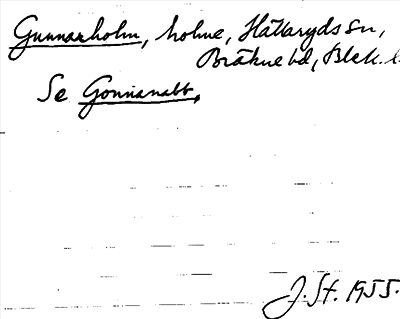 Gunnarholm, holme, Hällaryds sn,
Bräkne hd, Blek. l.
Se Gonnanabb,
J. St. 1955.